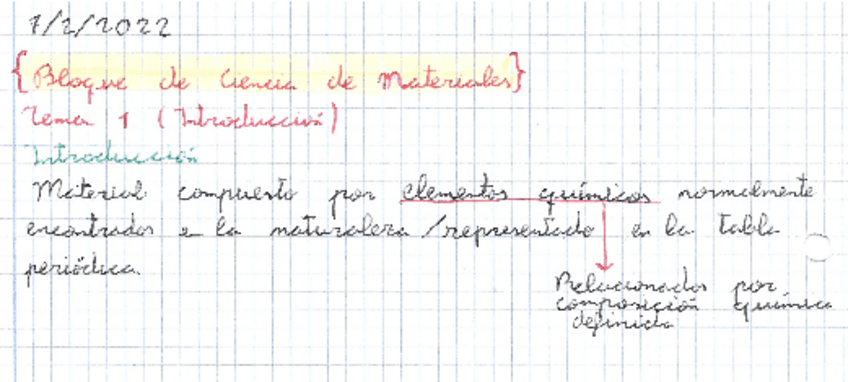 7/2/2022
{Bloque de Ciencia de Materiales}
Tema 1 (Introducción)
Introducción
Material compuesto por elementos químicos normalmente
encontrados e la naturaleza /representado en la tabla
periódica.
Relacionados por
composición química
definida